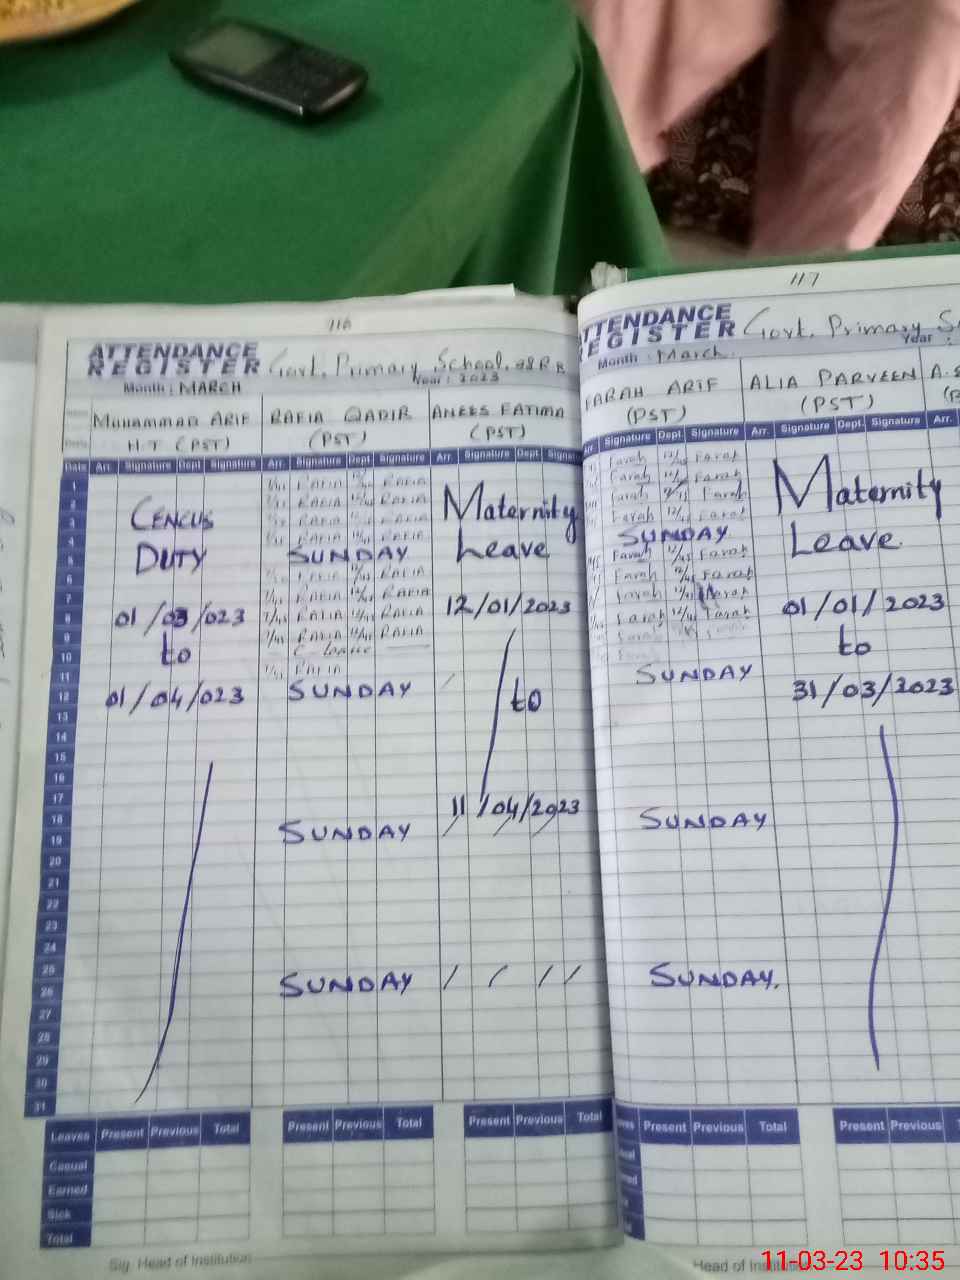 116
ATTENDANCE
REGISTER
Govt. Primary School,
Month : MARCH
Year : 2023
MUHAMMAD ARIF
H.T (PST)
RAFIA QADIR
(PST)
ANEES FATIMA
(PST)
Date Arr. Signature Dept Signature Arr. Signature Dept Signature Arr. Signature Dept
1
2
3
4
5
6
7
8
9
10
11
12
13
14
15
16
17
18
19
20
21
22
23
24
25
26
27
28
29
30
31
CENCUS
DUTY
01/03/023
to
01/04/023
RAFIA RAFIA
RAFIA RAFIA
RAFIA RAFIA
RAFIA RAFIA
SUNDAY
RAFIA
RAFIA RAFIA
RAFIA RAFIA
RAFIA RAFIA
RAFIA
SUNDAY
SUNDAY
SUNDAY
Maternity
Leave
12/01/2023
to
11/04/2023
Leaves Present Previous Total Present Previous Total Present Previous Total
Casual
Earned
Sick
Total
Sig. Head of Institution
117
TTENDANCE
EGISTER
Govt. Primary
Month : March.
Year :
FARAH ARIF
(PST)
ALIA PARVEEN
(PST)
Signature Dept Signature Arr. Signature Dept. Signature Arr.
Farah Farah
Farah Farah
Farah Farah
Farah Farah
SUNDAY
Farah Farah
Farah Farah
Farah Farah
Farah Farah
SUNDAY
SUNDAY
SUNDAY.
Maternity
Leave.
01/01/2023
to
31/03/2023
Present Previous Total Present Previous
Head of
11-03-23 10:35